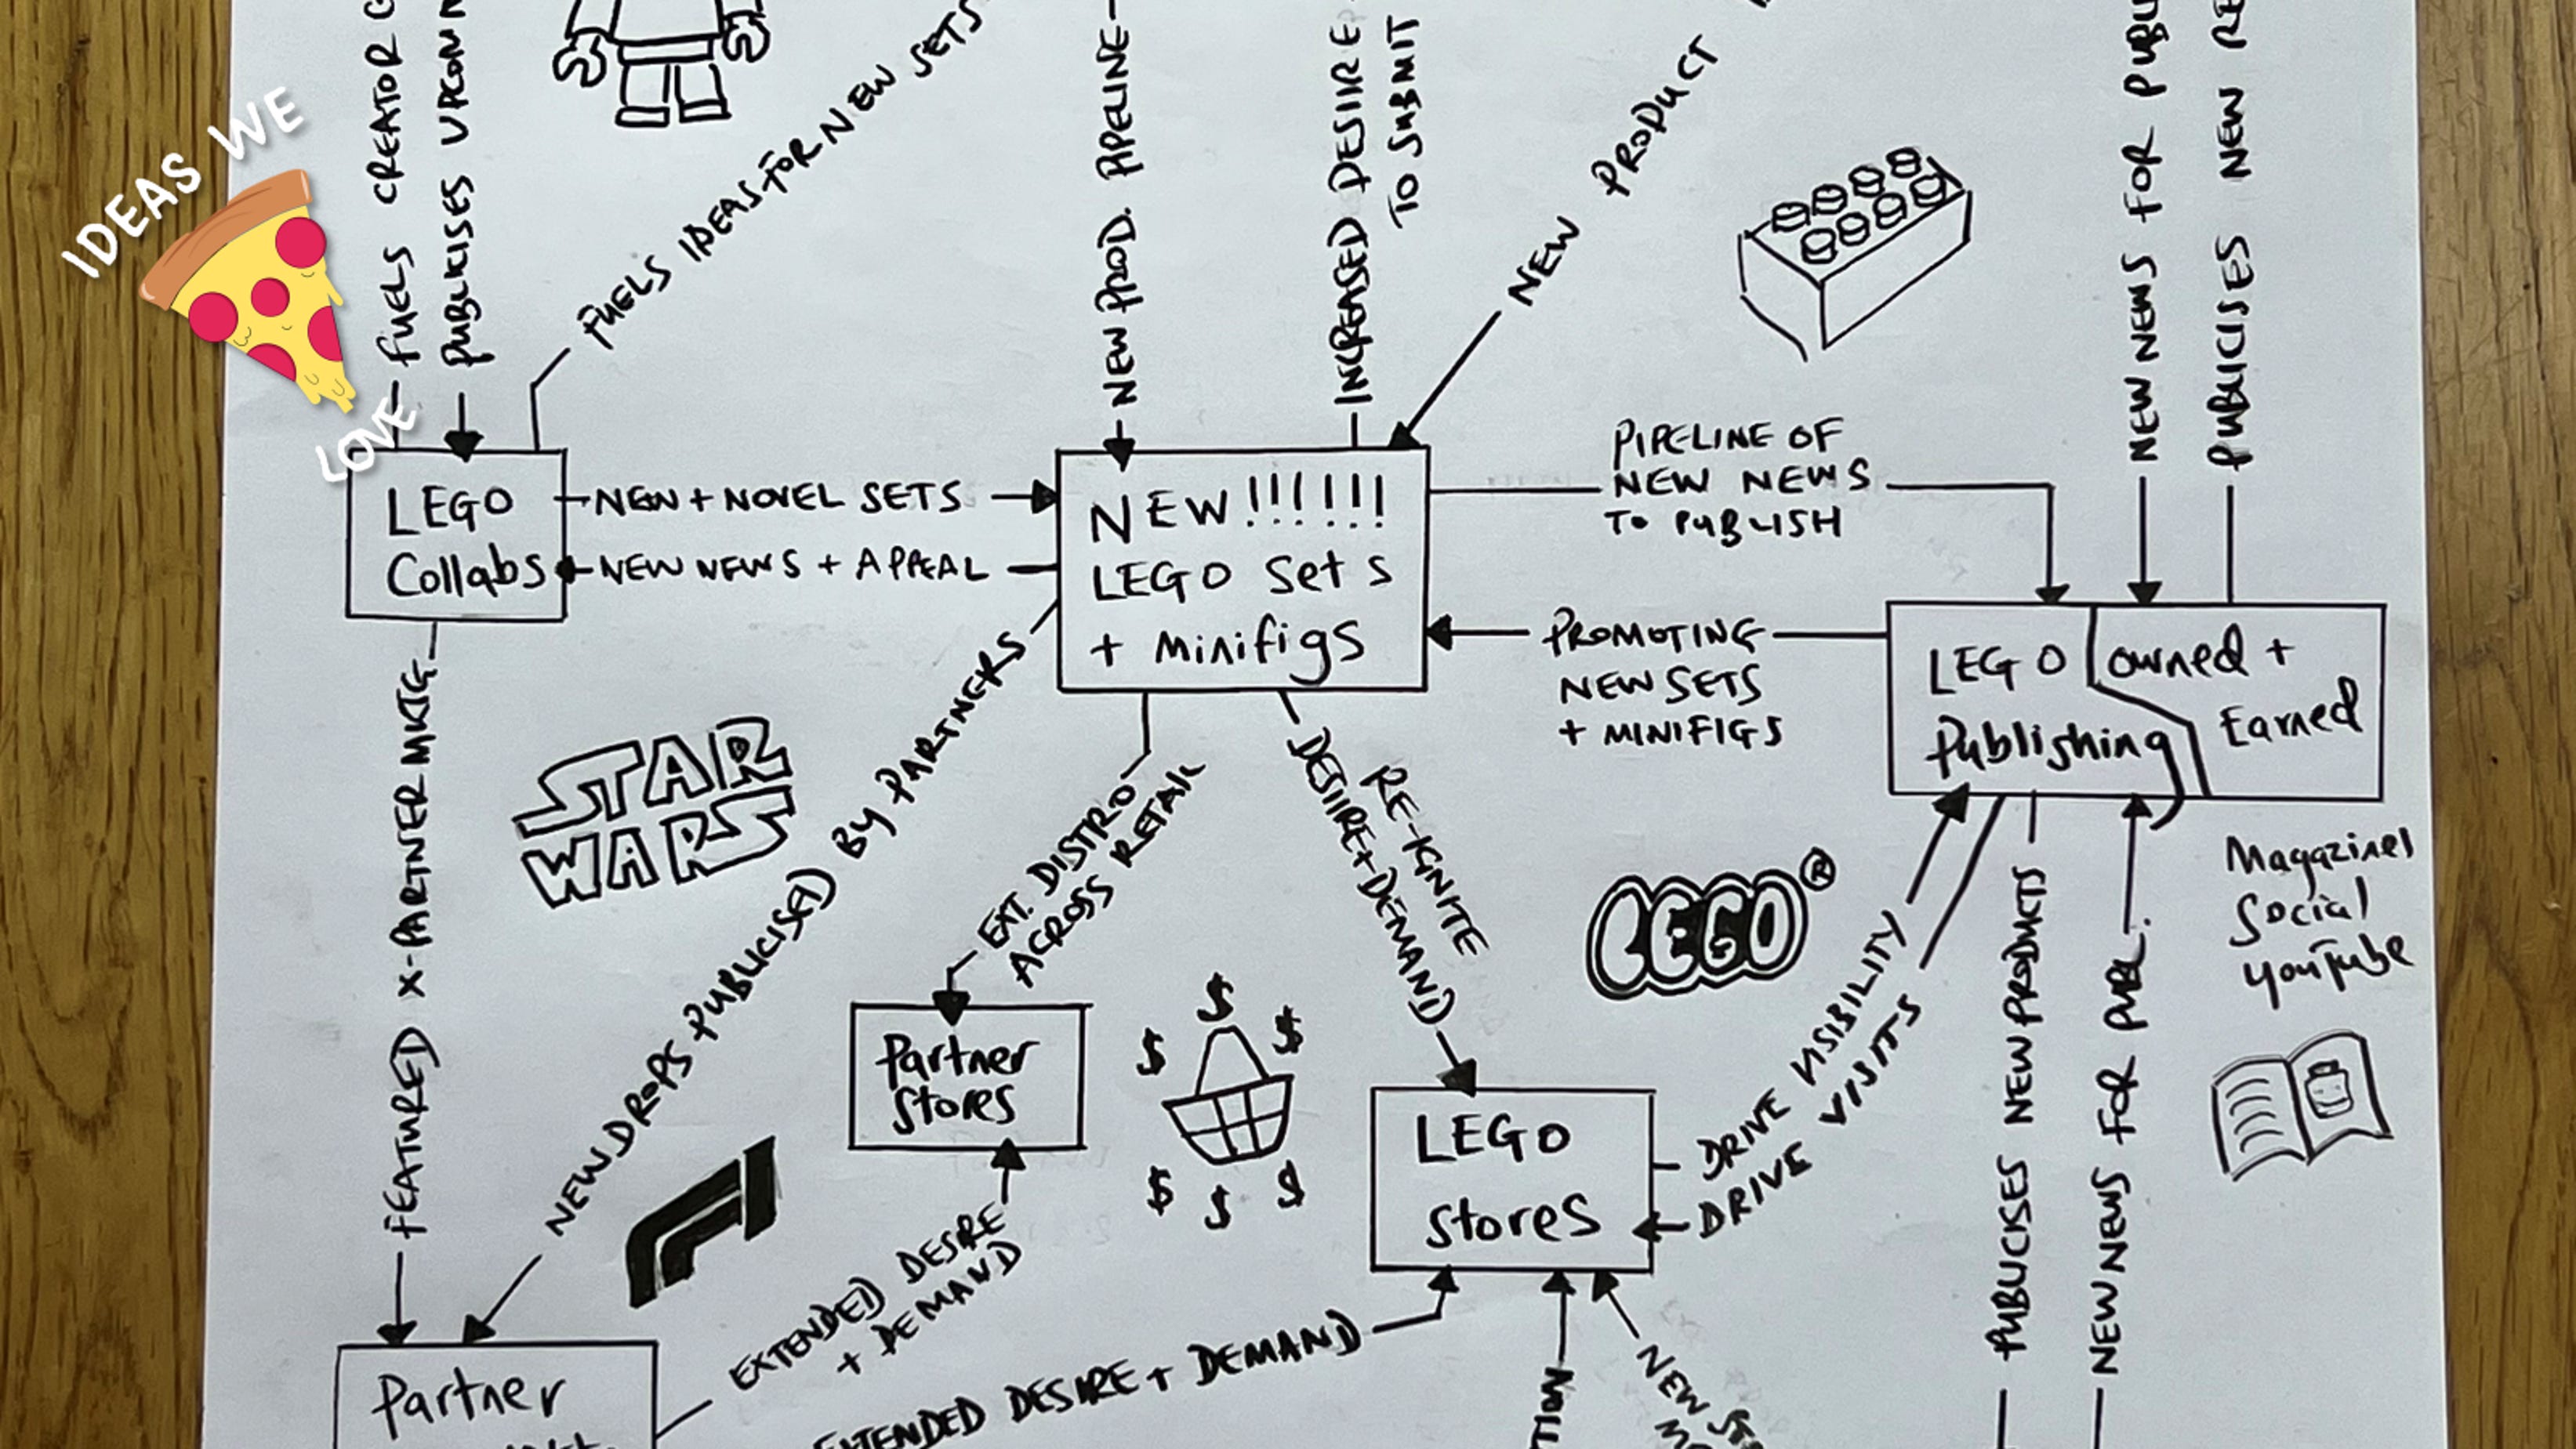 IDEAS WE
LOVE
FUELS CREATOR
PUBLICISES UPCOM
FUELS IDEAS FOR NEW SETS
NEW PROD. PIPELINE
INCREASED DESIRE
TO SUBMIT
NEW PRODUCT
NEW NEWS FOR PUBL
PUBLICISES NEW RE
LEGO
Collabs
NEW + NOVEL SETS
NEW NEWS + APPEAL
NEW!!!!!!!
LEGO Sets
+ Minifigs
PIPELINE OF
NEW NEWS
TO PUBLISH
PROMOTING
NEW SETS
+ MINIFIGS
LEGO
Publishing
owned +
Earned
Magazines
Social
YouTube
FEATURED X-PARTNER MKTG
STAR
WARS
NEW DROPS PUBLICISED BY PARTNERS
EXT. DISTRO
ACROSS RETAIL
RE-IGNITE
DESIRE + DEMAND
LEGO®
Partner
Stores
$ $ $
$ $ $
F1
LEGO
stores
DRIVE VISIBILITY
DRIVE VISITS
PUBLICISES NEW PRODUCTS
NEW NEWS FOR PUBL.
EXTENDED DESIRE
+ DEMAND
EXTENDED DESIRE + DEMAND
Partner
TION
NEW ST